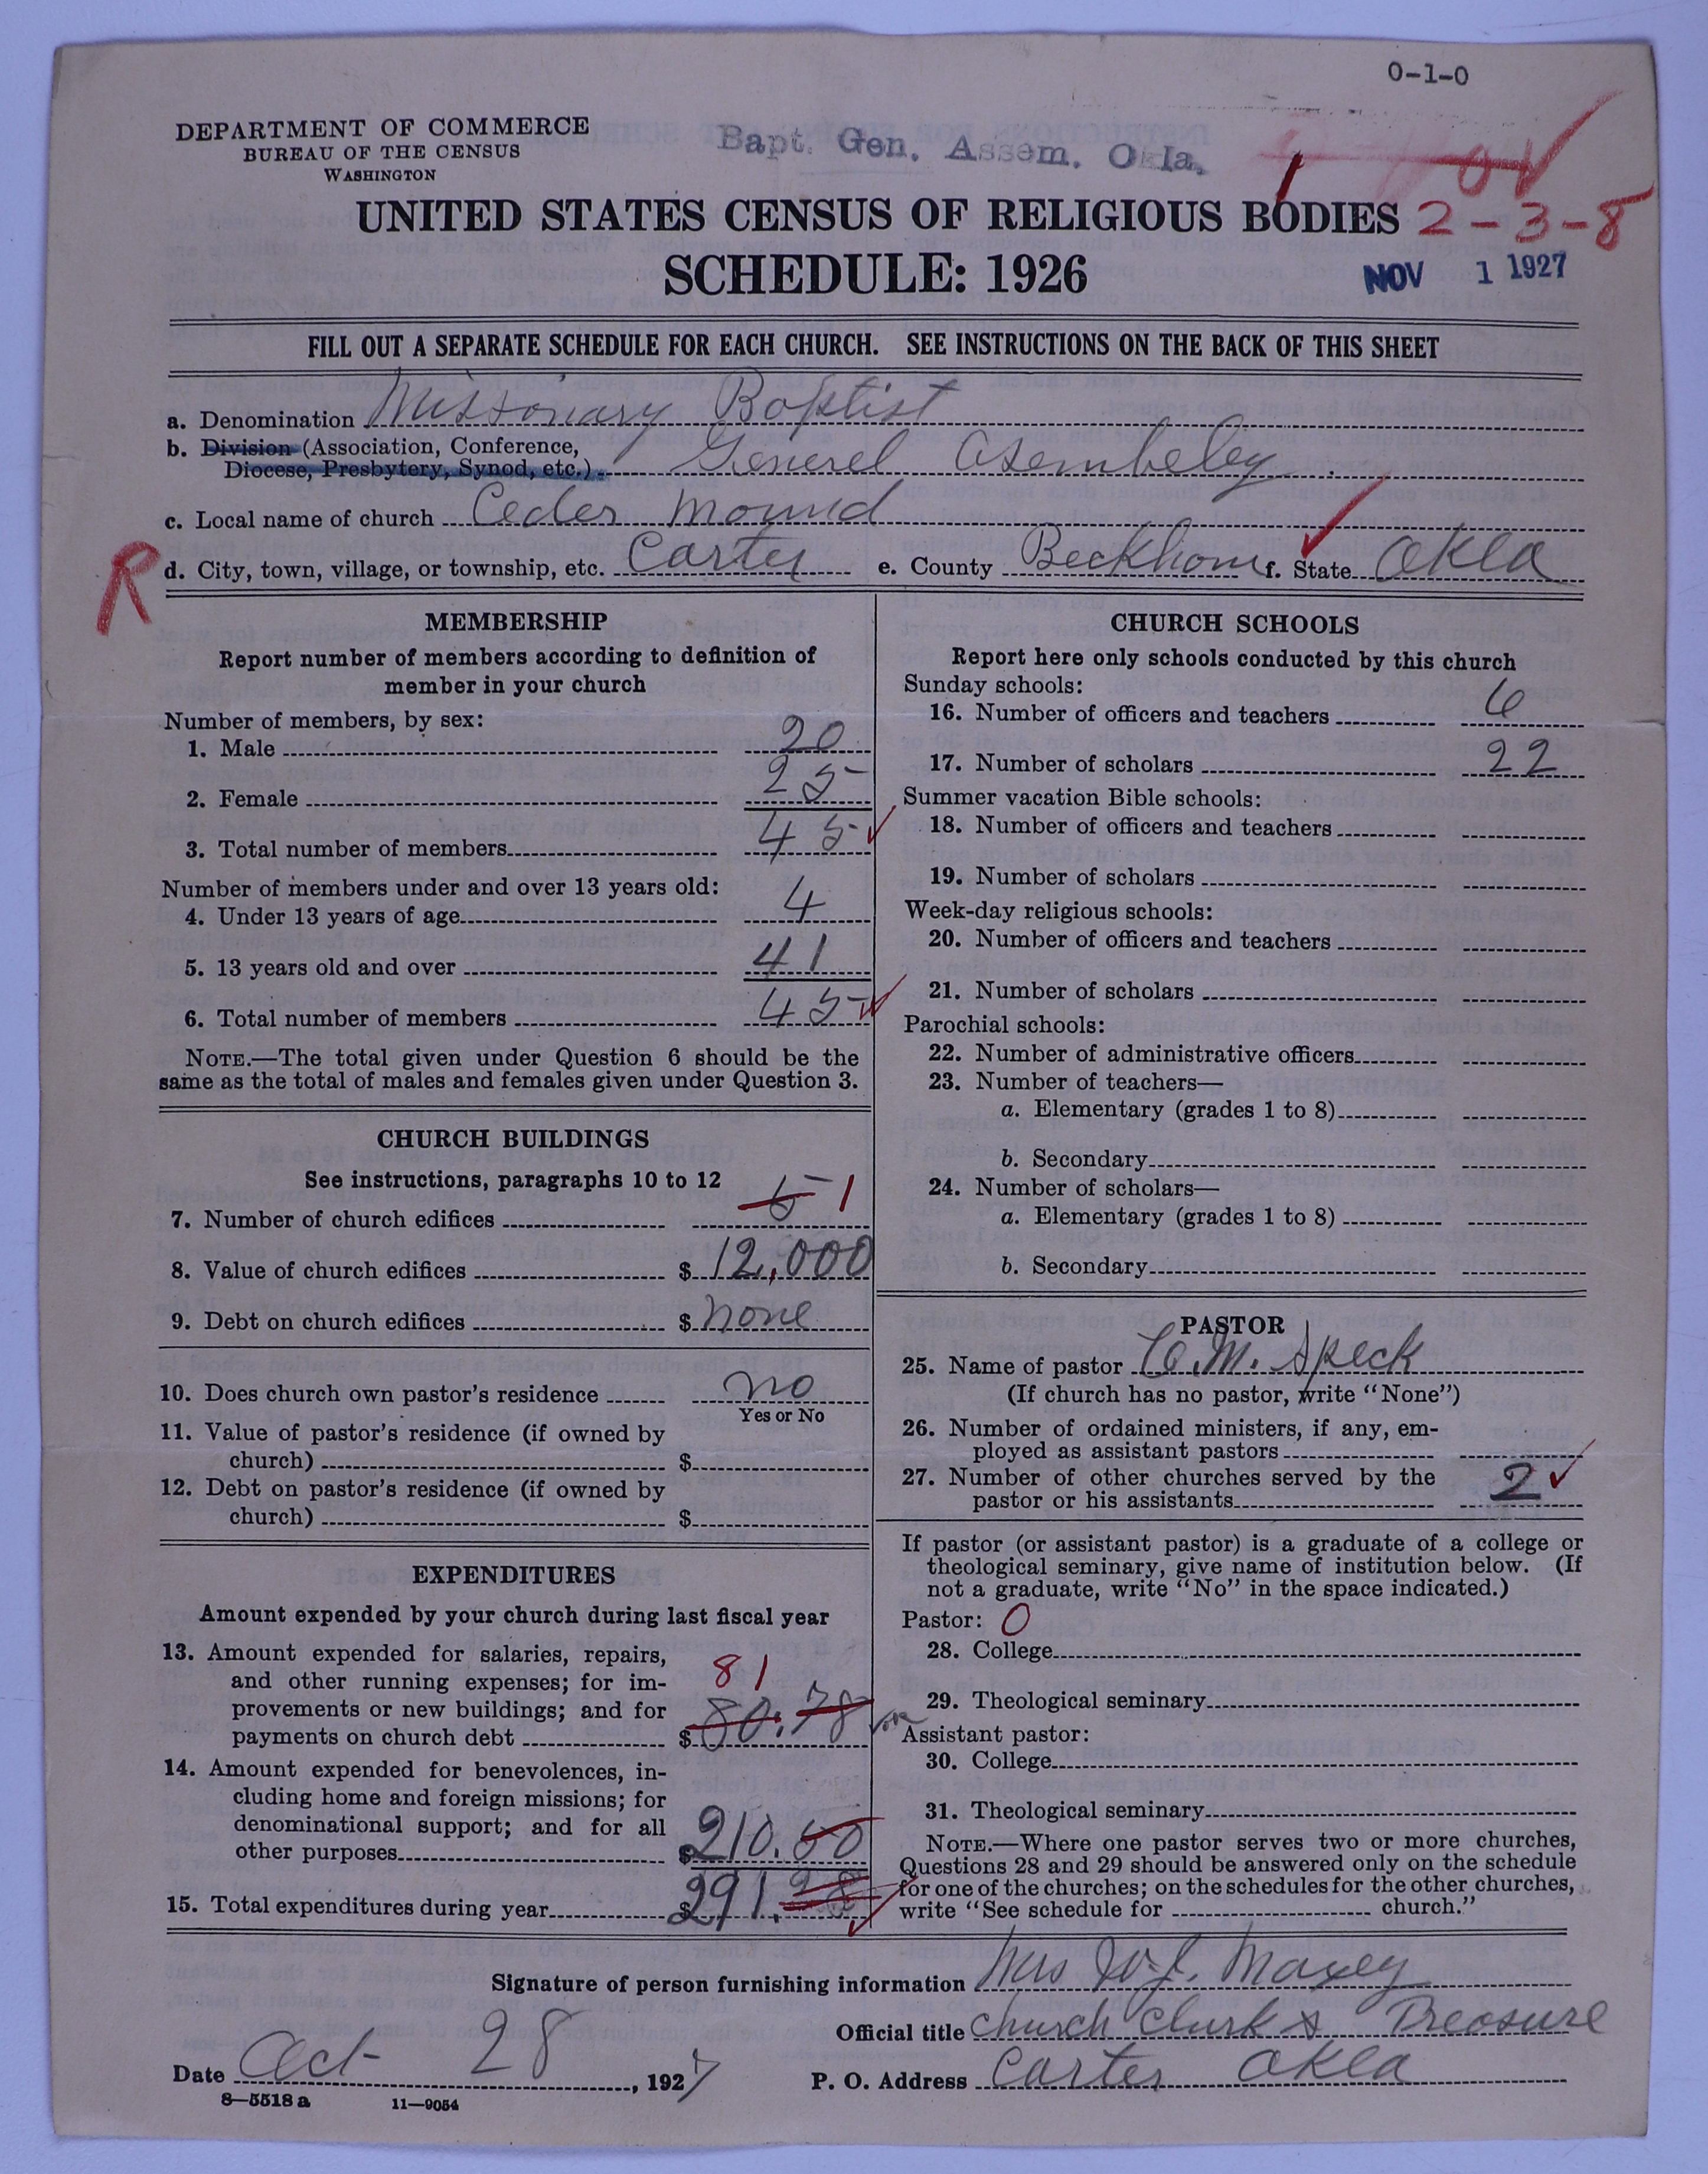 0-1-0
DEPARTMENT OF COMMERCE
BUREAU OF THE CENSUS
WASHINGTON
Bapt. Gen. Assem. Okla.
UNITED STATES CENSUS OF RELIGIOUS BODIES 2-3-8
SCHEDULE: 1926
NOV 1 1927
FILL OUT A SEPARATE SCHEDULE FOR EACH CHURCH. SEE INSTRUCTIONS ON THE BACK OF THIS SHEET
a. Denomination Missionary Baptist
b. Division (Association, Conference,
Diocese, Presbytery, Synod, etc.) Generel Asembeley
c. Local name of church Ceder Mound
R
d. City, town, village, or township, etc. Carter e. County Beckham f. State Okla
MEMBERSHIP
Report number of members according to definition of
member in your church
Number of members, by sex:
1. Male 20
2. Female 25
3. Total number of members 45
Number of members under and over 13 years old:
4. Under 13 years of age 4
5. 13 years old and over 41
6. Total number of members 45
NOTE.—The total given under Question 6 should be the
same as the total of males and females given under Question 3.
CHURCH BUILDINGS
See instructions, paragraphs 10 to 12
7. Number of church edifices 1
8. Value of church edifices $ 12,000
9. Debt on church edifices $ none
10. Does church own pastor's residence no
Yes or No
11. Value of pastor's residence (if owned by
church) $
12. Debt on pastor's residence (if owned by
church) $
EXPENDITURES
Amount expended by your church during last fiscal year
13. Amount expended for salaries, repairs,
and other running expenses; for im-
provements or new buildings; and for
payments on church debt $ 80.78
81
14. Amount expended for benevolences, in-
cluding home and foreign missions; for
denominational support; and for all
other purposes $ 210.50
15. Total expenditures during year $ 291.28
CHURCH SCHOOLS
Report here only schools conducted by this church
Sunday schools:
16. Number of officers and teachers 6
17. Number of scholars 22
Summer vacation Bible schools:
18. Number of officers and teachers
19. Number of scholars
Week-day religious schools:
20. Number of officers and teachers
21. Number of scholars
Parochial schools:
22. Number of administrative officers
23. Number of teachers—
a. Elementary (grades 1 to 8)
b. Secondary
24. Number of scholars—
a. Elementary (grades 1 to 8)
b. Secondary
PASTOR
25. Name of pastor C. M. Speck
(If church has no pastor, write "None")
26. Number of ordained ministers, if any, em-
ployed as assistant pastors
27. Number of other churches served by the
pastor or his assistants 2
If pastor (or assistant pastor) is a graduate of a college or
theological seminary, give name of institution below. (If
not a graduate, write "No" in the space indicated.)
Pastor: 0
28. College
29. Theological seminary
Assistant pastor:
30. College
31. Theological seminary
NOTE.—Where one pastor serves two or more churches,
Questions 28 and 29 should be answered only on the schedule
for one of the churches; on the schedules for the other churches,
write "See schedule for church."
Signature of person furnishing information Mrs W. J. Maxey
Official title Church Clurk & Treasure
Date Oct 28, 1927
P. O. Address Carter Okla
8—5518 a 11—9054